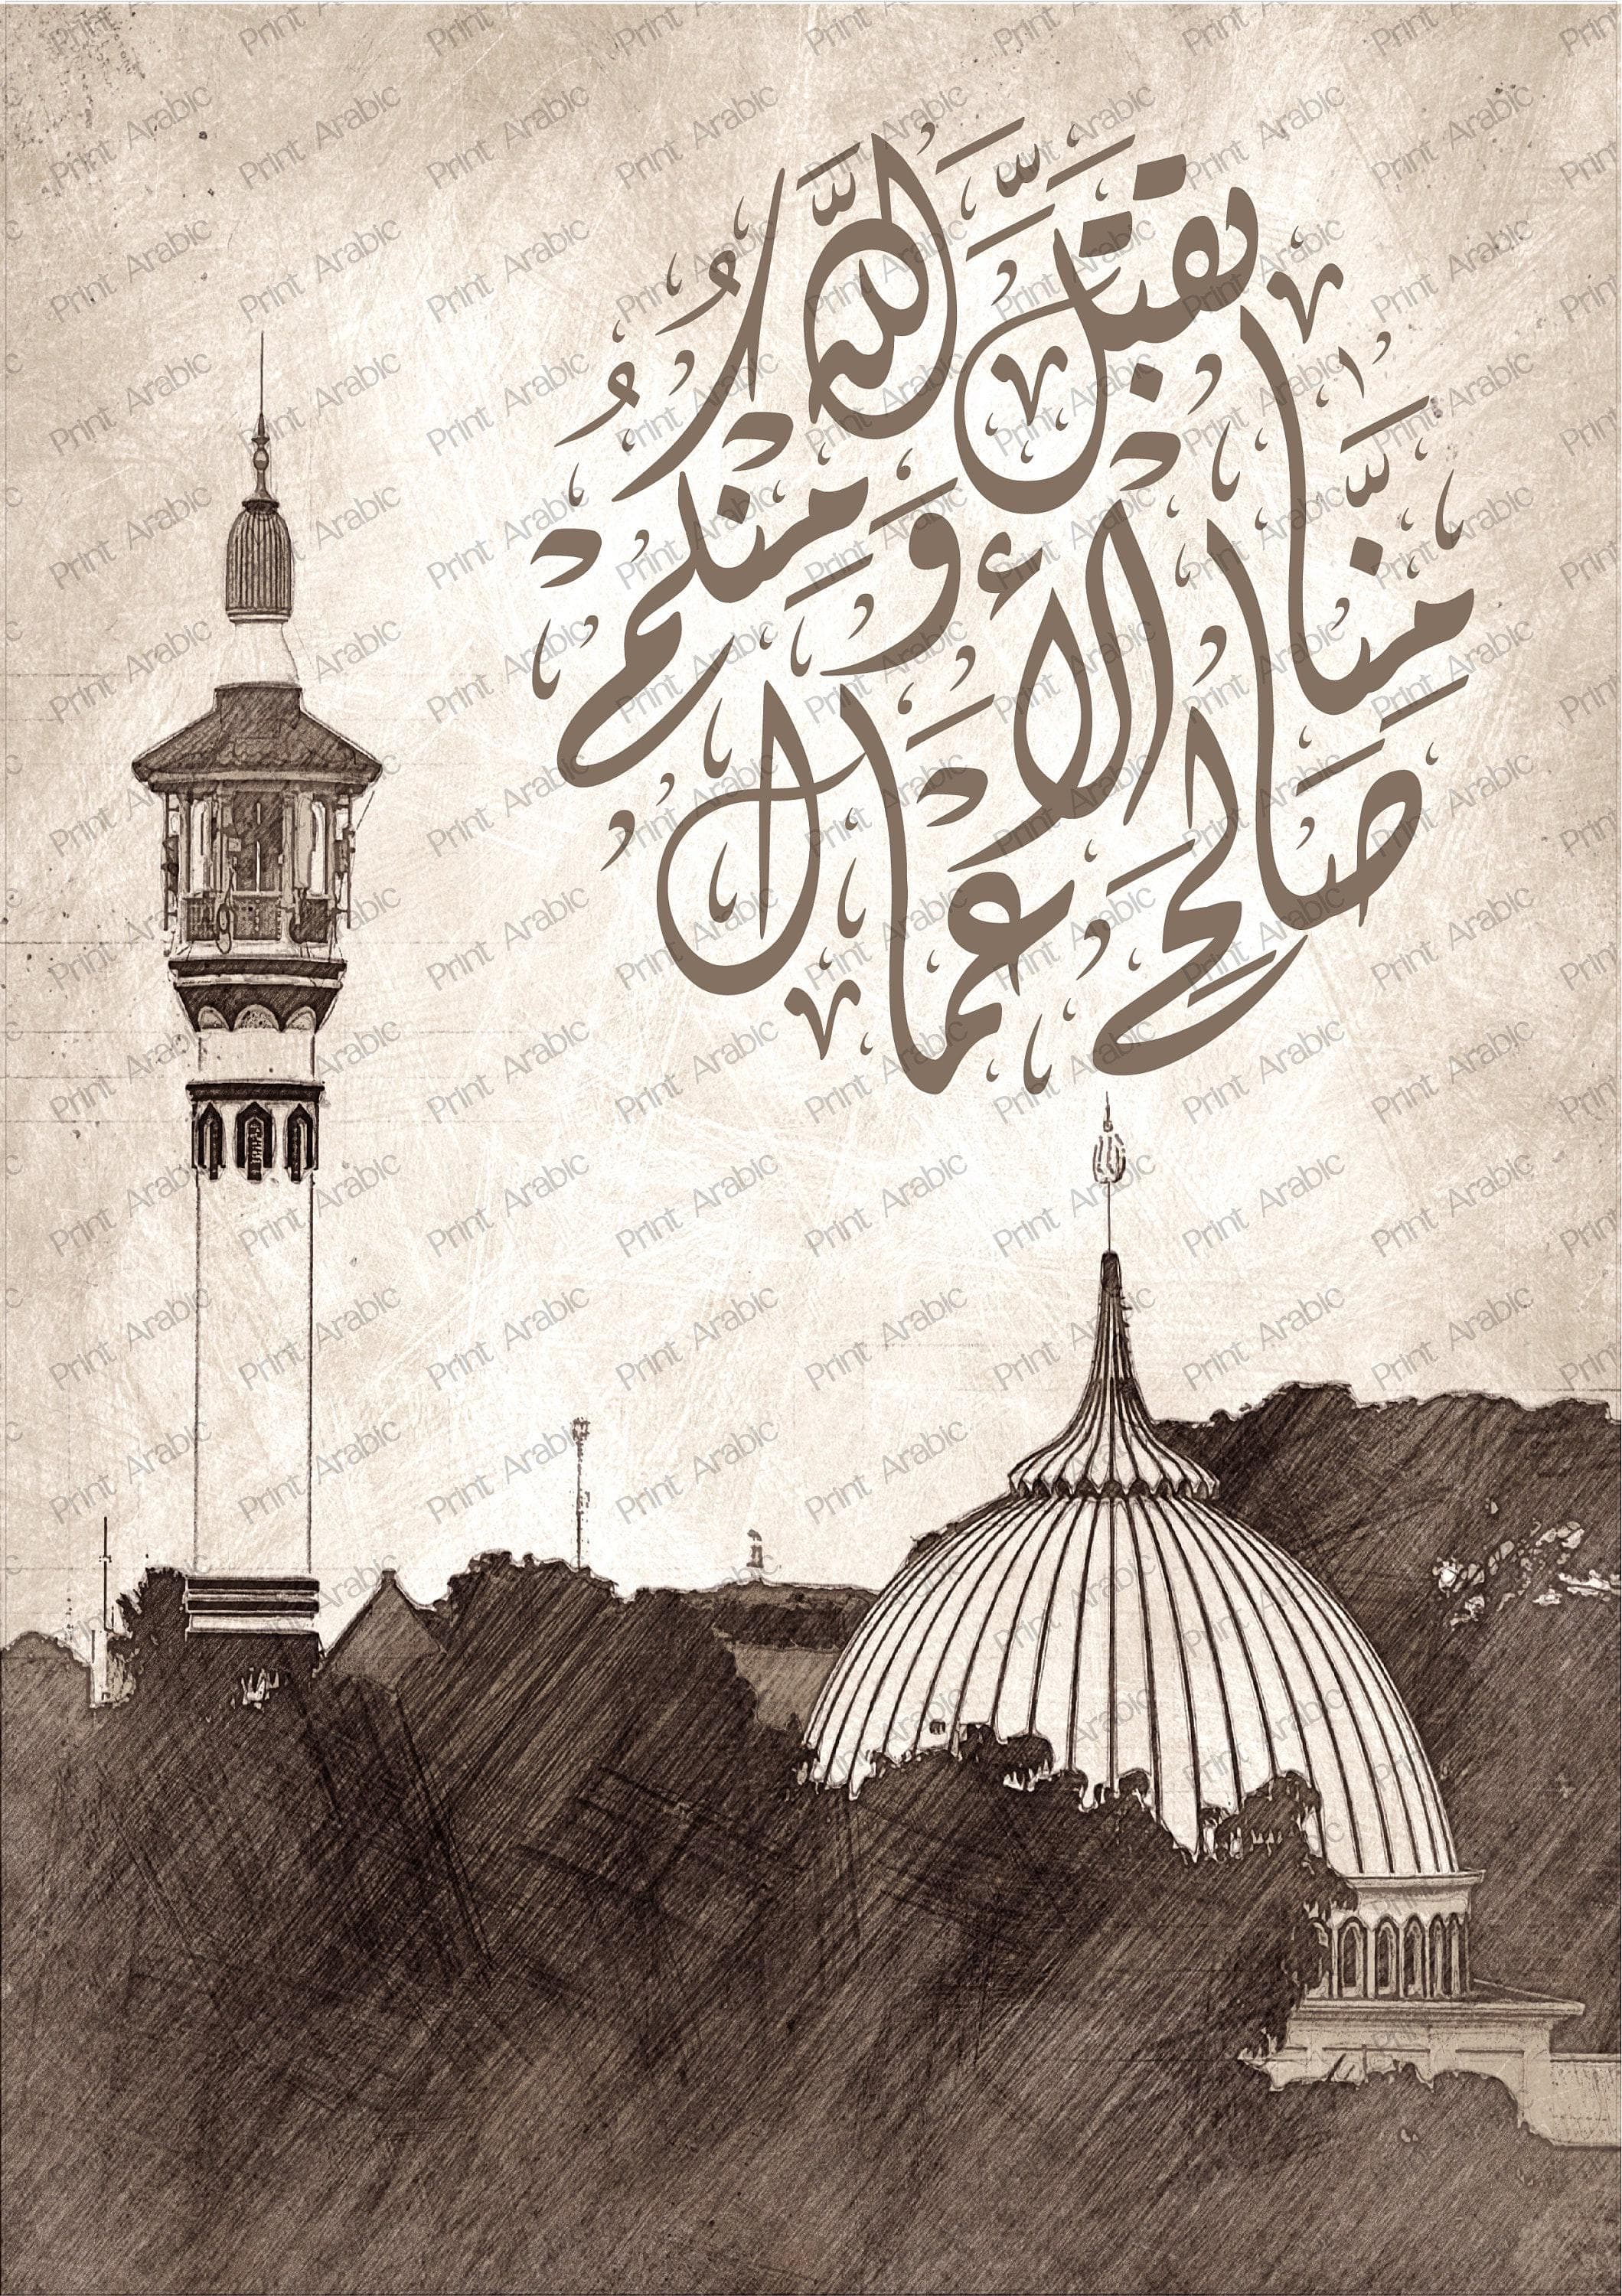 تقبّل الله
منّا ومنكم
صالح الأعمال
Print Arabic